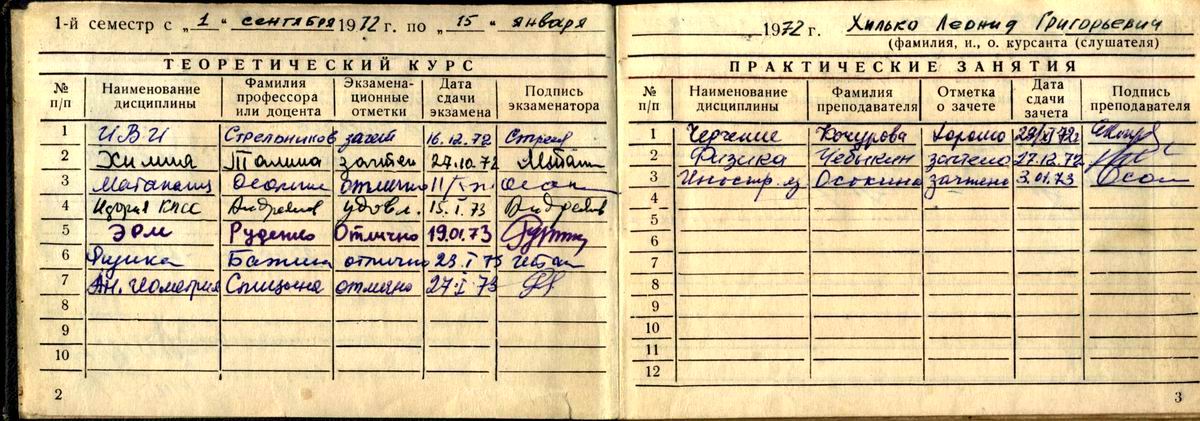 1-й семестр с „ 1 " сентября 1972 г. по „ 15 " января
ТЕОРЕТИЧЕСКИЙ КУРС
№ п/п Наименование дисциплины Фамилия профессора или доцента Экзаменационные отметки Дата сдачи экзамена Подпись экзаменатора
1 ИВИ Стрельников зачет 16.12.72
2 Химия Талина зачтен 27.10.72
3 Матанализ отлично
4 История КПСС Андреев удовл. 15.I.73
5 ЭВМ Руденко Отлично 19.01.73
6 Физика отлично 23.I 73
7 Ан. геометрия Спицына отлично 27.I 73
8
9
10
2
1972 г. Хилько Леонид Григорьевич
(фамилия, и., о. курсанта (слушателя)
ПРАКТИЧЕСКИЕ ЗАНЯТИЯ
№ п/п Наименование дисциплины Фамилия преподавателя Отметка о зачете Дата сдачи зачета Подпись преподавателя
1 Черчение Кочурова хорошо
2 Физика Чебыкин зачтено 27.12.72
3 Иностр. яз Осокина зачтено 3.01.73
4
5
6
7
8
9
10
11
12
3